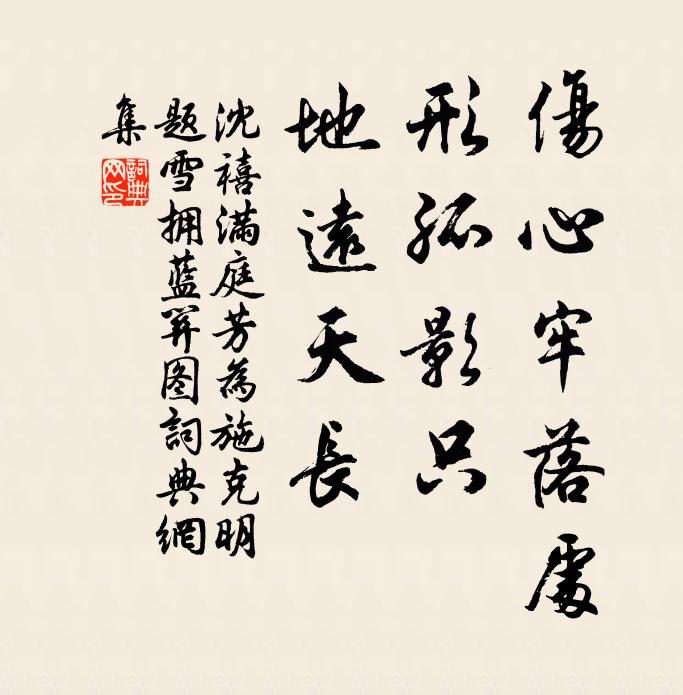 傷心牢落處
形孤影只
地遠天長
沈禧滿庭芳為施克明
题雪拥藍関图詞典網
集
詞典
网印